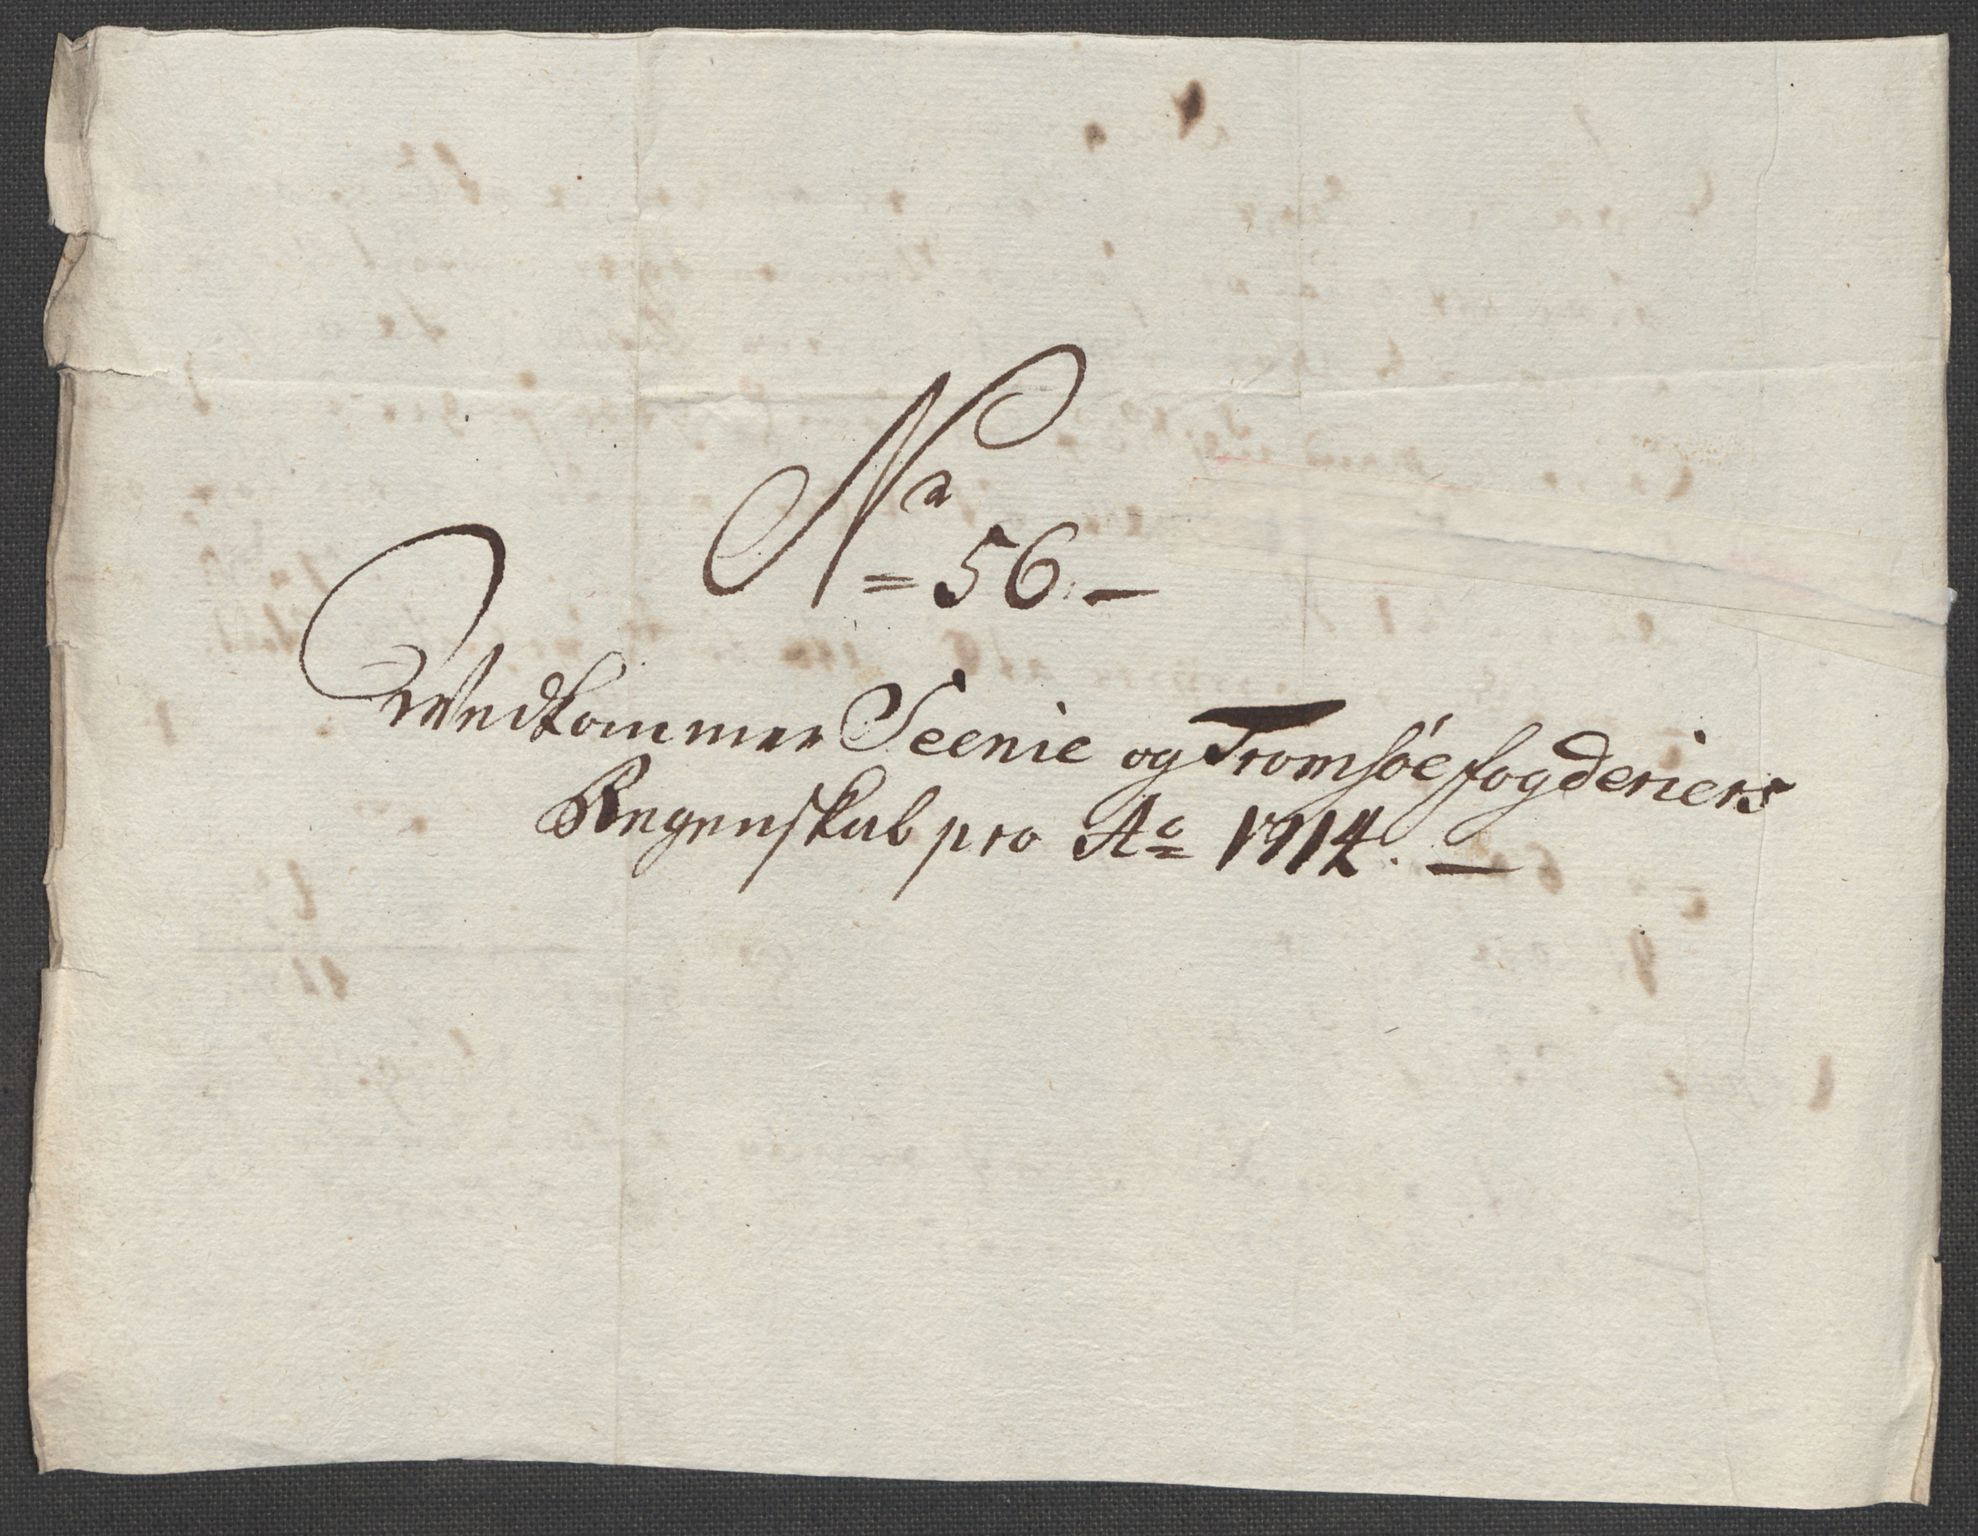 No
= 56. —
Vedkommer Seenie og Tromsøe fogderiers
Regenskab pro Ao 1714. —